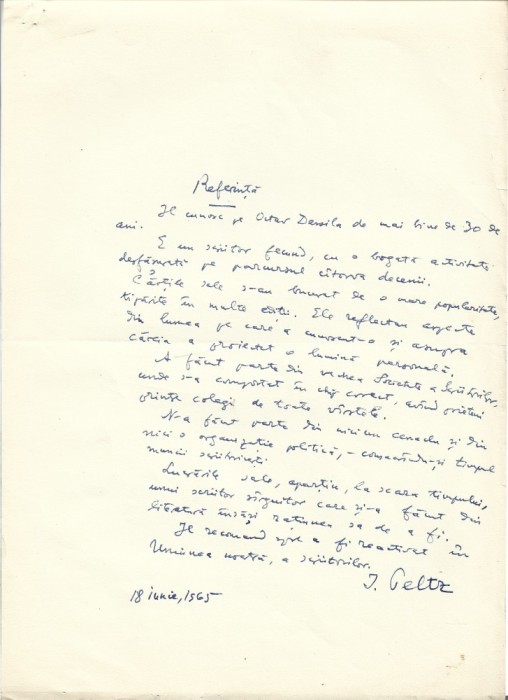 Referință
Îl cunosc pe Octav Dessila de mai bine de 30 de
ani.
E un scriitor fecund, cu o bogată activitate
desfășurată pe parcursul cîtorva decenii.
Cărțile sale s-au bucurat de o mare popularitate,
tipărite în multe ediții. Ele reflectau aspecte
din lumea pe care a cunoscut-o și asupra
căreia a proiectat o lumină personală.
A făcut parte din vechea Societate a Scriitorilor,
unde s-a comportat în chip corect, avînd prieteni
printre colegii de toate vîrstele.
N-a făcut parte din niciun cenaclu și din
nici o organizație politică, - consacrîndu-și timpul
muncii scriitoricești.
Lucrările sale, aparțin, la scara timpului,
unui scriitor sîrguitor care și-a făcut din
literatură însăși rațiunea sa de a fi.
Îl recomand spre a fi reactivat în
Uniunea noastră, a scriitorilor.
I. Peltz
18 iunie, 1965